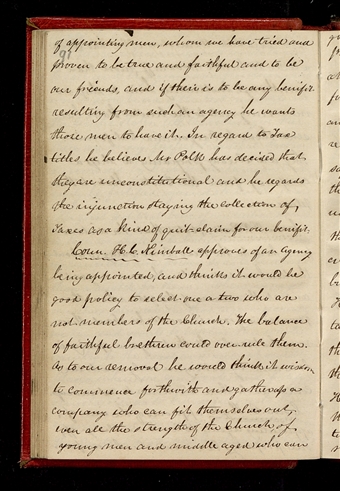 of appointing men, whom we have tried and
proven to be true and faithful and to be
our friends, and if there is to be any benifit
resulting from such an agency he wants
those men to have it. In regard to Tax
titles he believes Mr Polk has decided that
they are unconstitutional and he regards
the injunction staying the collection of
Taxes as a kind of quit-claim for our benifit.
Coun. H. C. Kimball approves of an agency
being appointed, and thinks it would be
good policy to select one a two who are
not members of the Church. The balance
of faithful brethren could over rule them.
As to our removal he would think it wisdom
to commence forthwith and gather up a
company who can fit themselves out,
even all the strength of the Church of
young men and middle aged who can